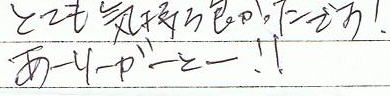 とても気持ち良かったです!
あーりーがーとー!!